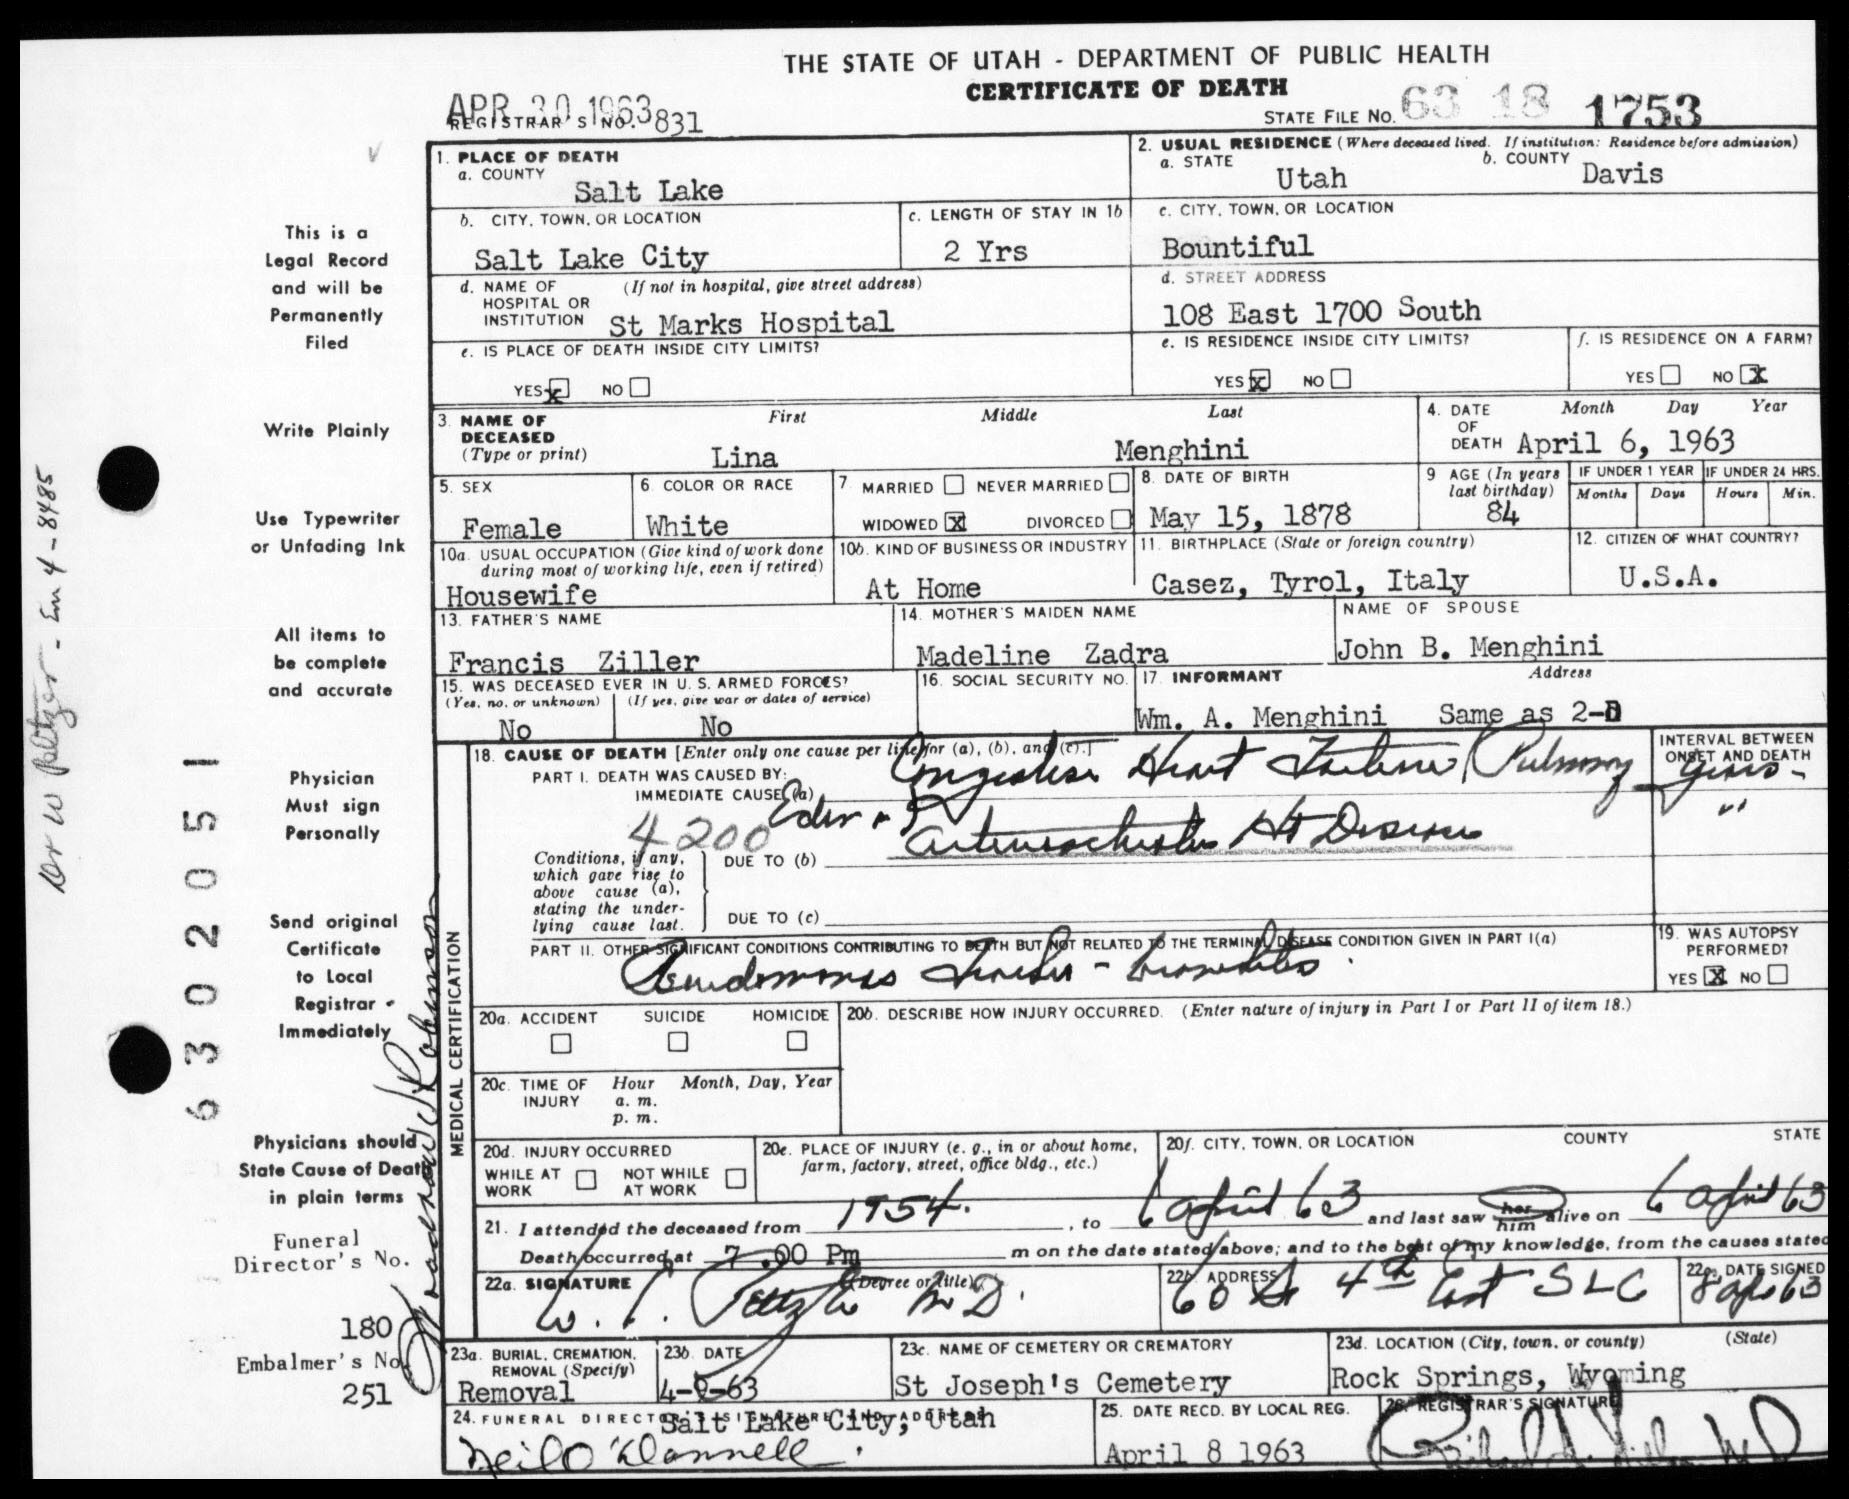 THE STATE OF UTAH - DEPARTMENT OF PUBLIC HEALTH
CERTIFICATE OF DEATH
APR 30 1963
REGISTRAR'S NO. 831
STATE FILE NO. 63 18 1753
1. PLACE OF DEATH
a. COUNTY
Salt Lake
2. USUAL RESIDENCE (Where deceased lived. If institution: Residence before admission)
a. STATE Utah
b. COUNTY Davis
b. CITY, TOWN, OR LOCATION
Salt Lake City
c. LENGTH OF STAY IN 1b
2 Yrs
c. CITY, TOWN, OR LOCATION
Bountiful
d. NAME OF HOSPITAL OR INSTITUTION (If not in hospital, give street address)
St Marks Hospital
d. STREET ADDRESS
108 East 1700 South
e. IS PLACE OF DEATH INSIDE CITY LIMITS?
YES x NO
e. IS RESIDENCE INSIDE CITY LIMITS?
YES x NO
f. IS RESIDENCE ON A FARM?
YES NO x
3. NAME OF DECEASED (Type or print)
First Middle Last
Lina Menghini
4. DATE OF DEATH Month Day Year
April 6, 1963
5. SEX
Female
6. COLOR OR RACE
White
7. MARRIED NEVER MARRIED
WIDOWED x DIVORCED
8. DATE OF BIRTH
May 15, 1878
9 AGE (In years last birthday)
84
IF UNDER 1 YEAR
Months Days
IF UNDER 24 HRS.
Hours Min.
10a. USUAL OCCUPATION (Give kind of work done during most of working life, even if retired)
Housewife
10b. KIND OF BUSINESS OR INDUSTRY
At Home
11. BIRTHPLACE (State or foreign country)
Casez, Tyrol, Italy
12. CITIZEN OF WHAT COUNTRY?
U.S.A.
13. FATHER'S NAME
Francis Ziller
14. MOTHER'S MAIDEN NAME
Madeline Zadra
NAME OF SPOUSE
John B. Menghini
15. WAS DECEASED EVER IN U. S. ARMED FORCES?
(Yes, no, or unknown) (If yes, give war or dates of service)
No No
16. SOCIAL SECURITY NO.
17. INFORMANT Address
Wm. A. Menghini Same as 2-D
MEDICAL CERTIFICATION
18. CAUSE OF DEATH [Enter only one cause per line for (a), (b), and (c).]
PART I. DEATH WAS CAUSED BY:
IMMEDIATE CAUSE (a)
Congestive Heart Failure Pulmonary
Edema
INTERVAL BETWEEN ONSET AND DEATH
years -
"
4200
Conditions, if any, which gave rise to above cause (a), stating the underlying cause last.
DUE TO (b)
Ht Disease
DUE TO (c)
PART II. OTHER SIGNIFICANT CONDITIONS CONTRIBUTING TO DEATH BUT NOT RELATED TO THE TERMINAL DISEASE CONDITION GIVEN IN PART I(a)
Pseudomonas
19. WAS AUTOPSY PERFORMED?
YES x NO
20a. ACCIDENT SUICIDE HOMICIDE
20b. DESCRIBE HOW INJURY OCCURRED. (Enter nature of injury in Part I or Part II of item 18.)
20c. TIME OF INJURY Hour Month, Day, Year
a. m.
p. m.
20d. INJURY OCCURRED
WHILE AT WORK NOT WHILE AT WORK
20e. PLACE OF INJURY (e. g., in or about home, farm, factory, street, office bldg., etc.)
20f. CITY, TOWN, OR LOCATION COUNTY STATE
21. I attended the deceased from 1954. , to 6 april 63 and last saw her him alive on 6 april 63
Death occurred at 7.00 Pm m on the date stated above; and to the best of my knowledge, from the causes stated
22a. SIGNATURE (Degree or title)
MD.
22b. ADDRESS
4th East SLC
22c. DATE SIGNED
8 apr 63
23a. BURIAL, CREMATION, REMOVAL (Specify)
Removal
23b. DATE
23c. NAME OF CEMETERY OR CREMATORY
St Joseph's Cemetery
23d. LOCATION (City, town, or county) (State)
Rock Springs, Wyoming
24. FUNERAL DIRECTOR'S SIGNATURE AND ADDRESS
Salt Lake City, Utah
Neil O'Donnell
25. DATE RECD. BY LOCAL REG.
April 8 1963
26. REGISTRAR'S SIGNATURE
This is a
Legal Record
and will be
Permanently
Filed
Write Plainly
Use Typewriter
or Unfading Ink
All items to
be complete
and accurate
Physician
Must sign
Personally
Send original
Certificate
to Local
Registrar
Immediately
Physicians should
State Cause of Death
in plain terms
Funeral
Director's No.
180
Embalmer's No.
251
6302051
Dr W Peltzer - Em 4-8485